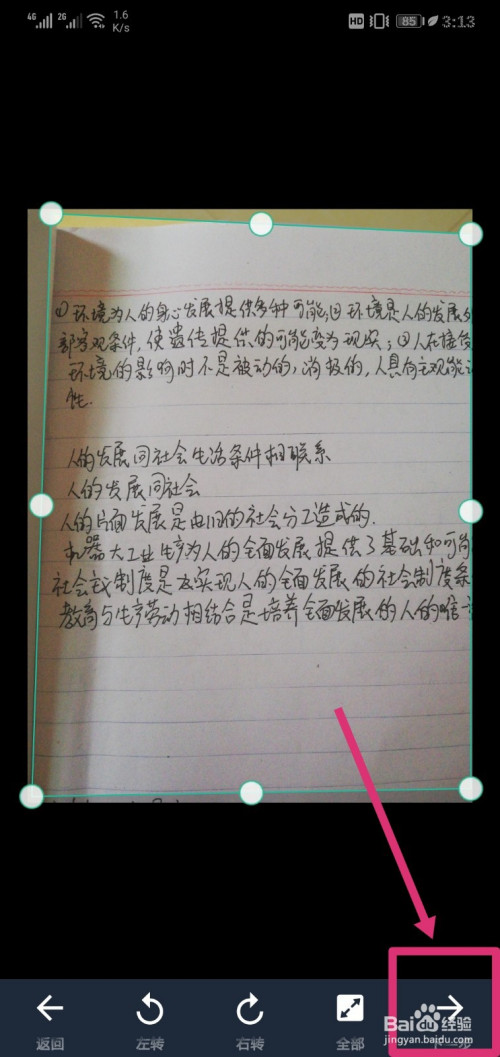 4G 2G 1.6 K/s HD 85 3:13
①环境为人的身心发展提供多种可能;②环境是人的发展外
部客观条件,使遗传提供的可能变为现实;③人在接受
环境的影响时不是被动的,消极的,人具有主观能动
性.
人的发展同社会生活条件相联系
人的发展同社会
人的片面发展是由旧的社会分工造成的.
机器大工业生产为人的全面发展提供了基础和可能
社会主义制度是实现人的全面发展的社会制度条
教育与生产劳动相结合是培养全面发展的人的唯一
返回 左转 右转 全部
Baidu经验
jingyan.baidu.com